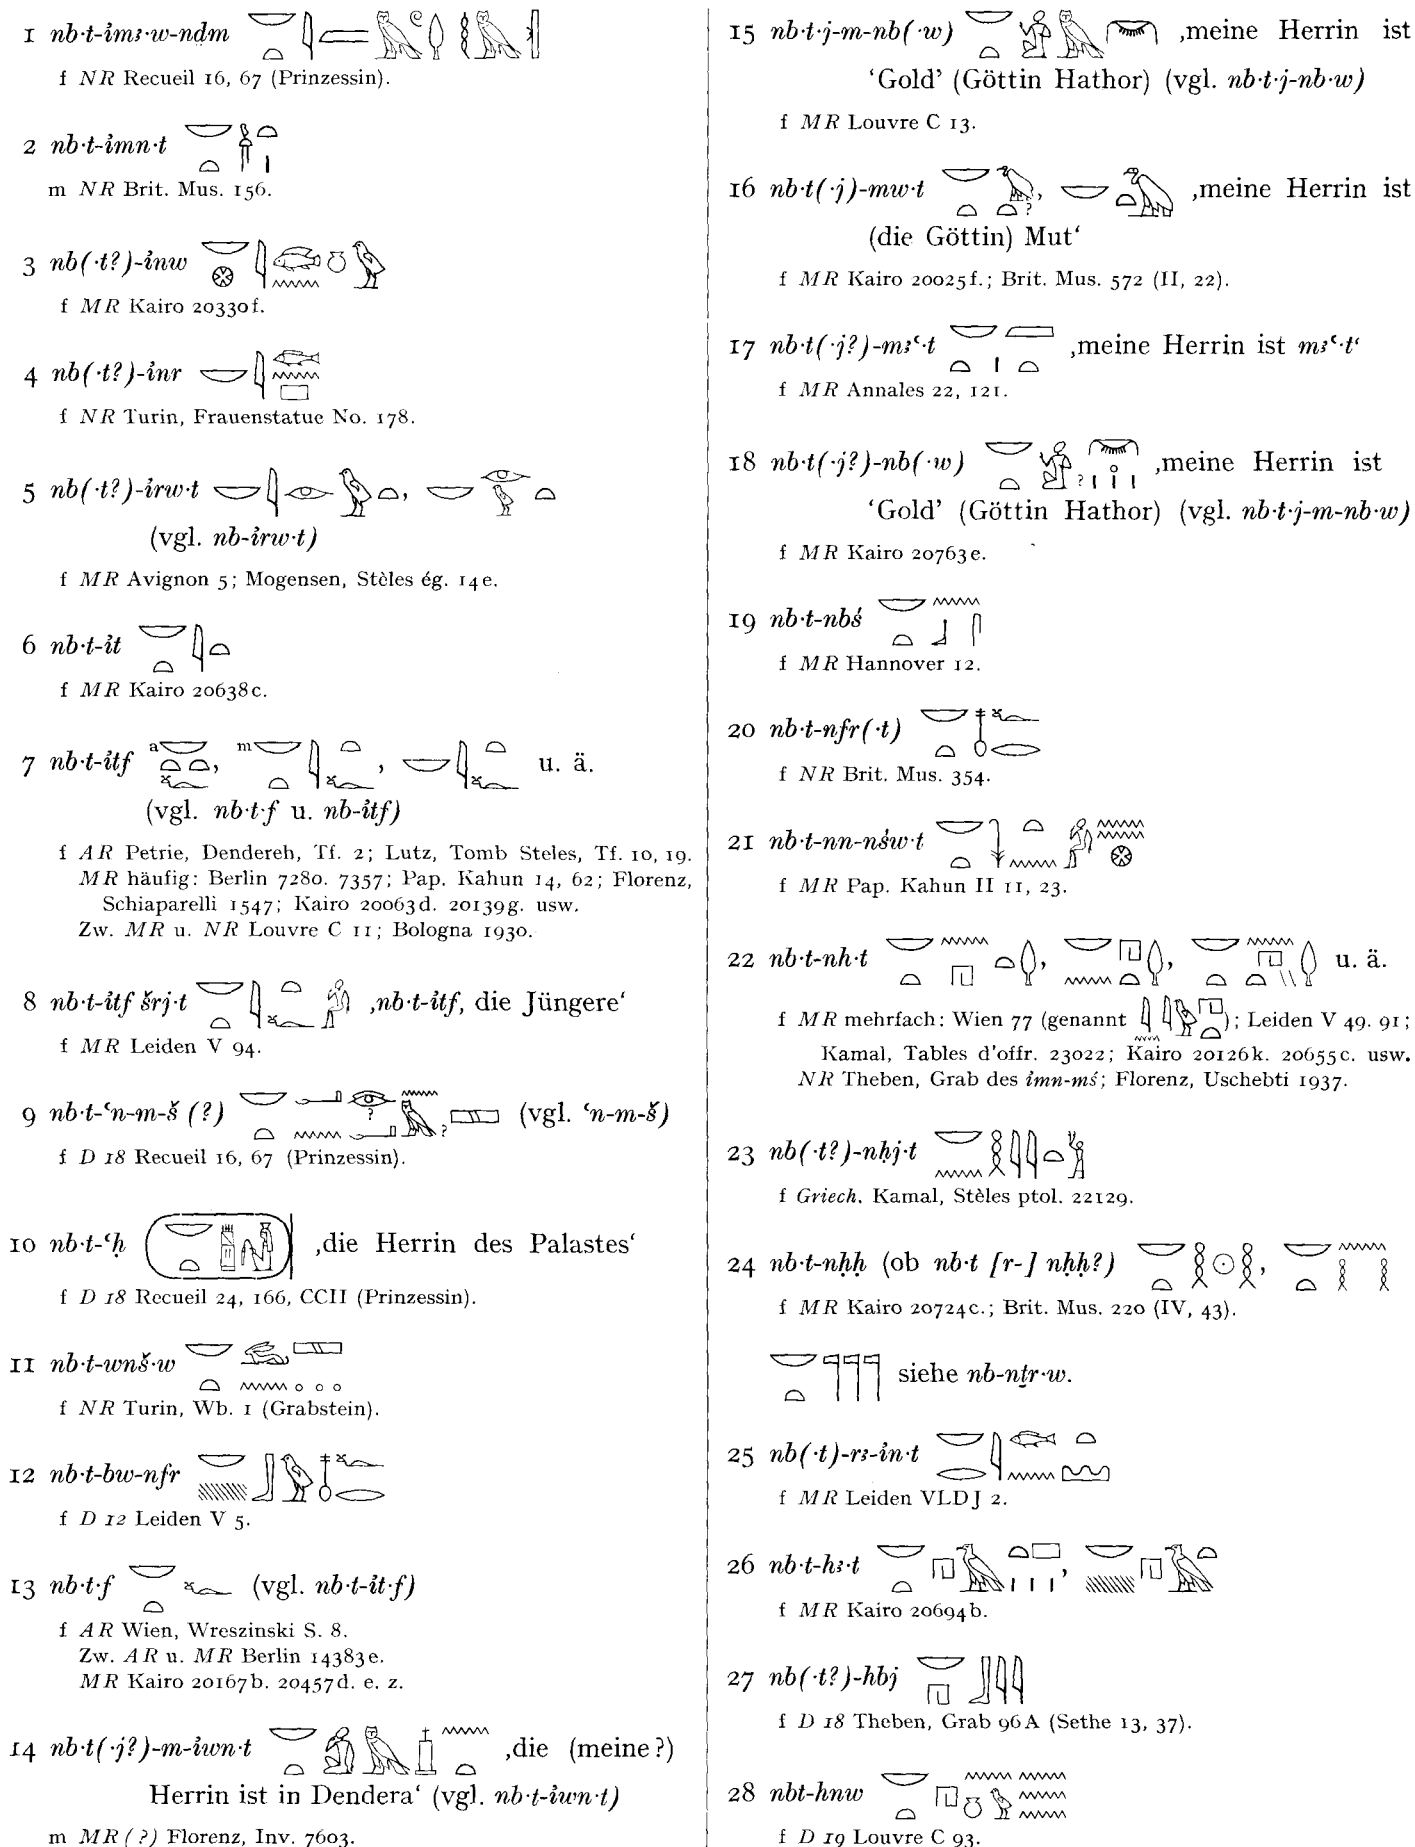 1 nb·t-ỉmꜣ·w-nḏm
f NR Recueil 16, 67 (Prinzessin).
2 nb·t-ỉmn·t
m NR Brit. Mus. 156.
3 nb(·t?)-ỉnw
f MR Kairo 20330f.
4 nb(·t?)-ỉnr
f NR Turin, Frauenstatue No. 178.
5 nb(·t?)-ỉrw·t ,
(vgl. nb-ỉrw·t)
f MR Avignon 5; Mogensen, Stèles ég. 14e.
6 nb·t-ỉt
f MR Kairo 20638c.
7 nb·t-ỉtf a , m , u. ä.
(vgl. nb·t·f u. nb-ỉtf)
f AR Petrie, Dendereh, Tf. 2; Lutz, Tomb Steles, Tf. 10, 19.
MR häufig: Berlin 7280. 7357; Pap. Kahun 14, 62; Florenz,
Schiaparelli 1547; Kairo 20063d. 20139g. usw.
Zw. MR u. NR Louvre C 11; Bologna 1930.
8 nb·t-ỉtf šrj·t ‚nb·t-ỉtf, die Jüngere‘
f MR Leiden V 94.
9 nb·t-ꜥn-m-š (?) ? ? (vgl. ꜥn-m-š)
f D 18 Recueil 16, 67 (Prinzessin).
10 nb·t-ꜥḥ ‚die Herrin des Palastes‘
f D 18 Recueil 24, 166, CCII (Prinzessin).
11 nb·t-wnš·w
f NR Turin, Wb. 1 (Grabstein).
12 nb·t-bw-nfr
f D 12 Leiden V 5.
13 nb·t·f (vgl. nb·t-ỉt·f)
f AR Wien, Wreszinski S. 8.
Zw. AR u. MR Berlin 14383e.
MR Kairo 20167b. 20457d. e. z.
14 nb·t(·j?)-m-ỉwn·t ‚die (meine?)
Herrin ist in Dendera‘ (vgl. nb·t-ỉwn·t)
m MR (?) Florenz, Inv. 7603.
15 nb·t·j-m-nb(·w) ‚meine Herrin ist
‘Gold’ (Göttin Hathor) (vgl. nb·t·j-nb·w)
f MR Louvre C 13.
16 nb·t(·j)-mw·t ?, ‚meine Herrin ist
(die Göttin) Mut‘
f MR Kairo 20025f.; Brit. Mus. 572 (II, 22).
17 nb·t(·j?)-mꜣꜥ·t ‚meine Herrin ist mꜣꜥ·t‘
f MR Annales 22, 121.
18 nb·t(·j?)-nb(·w) ? ‚meine Herrin ist
‘Gold’ (Göttin Hathor) (vgl. nb·t·j-m-nb·w)
f MR Kairo 20763e.
19 nb·t-nbś
f MR Hannover 12.
20 nb·t-nfr(·t)
f NR Brit. Mus. 354.
21 nb·t-nn-nśw·t
f MR Pap. Kahun II 11, 23.
22 nb·t-nh·t , , u. ä.
f MR mehrfach: Wien 77 (genannt ); Leiden V 49. 91;
Kamal, Tables d'offr. 23022; Kairo 20126k. 20655c. usw.
NR Theben, Grab des ỉmn-mś; Florenz, Uschebti 1937.
23 nb(·t?)-nḥj·t
f Griech. Kamal, Stèles ptol. 22129.
24 nb·t-nḥḥ (ob nb·t [r-] nḥḥ?) ,
f MR Kairo 20724c.; Brit. Mus. 220 (IV, 43).
siehe nb-nṯr·w.
25 nb(·t)-rꜣ-ỉn·t
f MR Leiden VLDJ 2.
26 nb·t-hꜣ·t ,
f MR Kairo 20694b.
27 nb(·t?)-hbj
f D 18 Theben, Grab 96A (Sethe 13, 37).
28 nbt-hnw
f D 19 Louvre C 93.